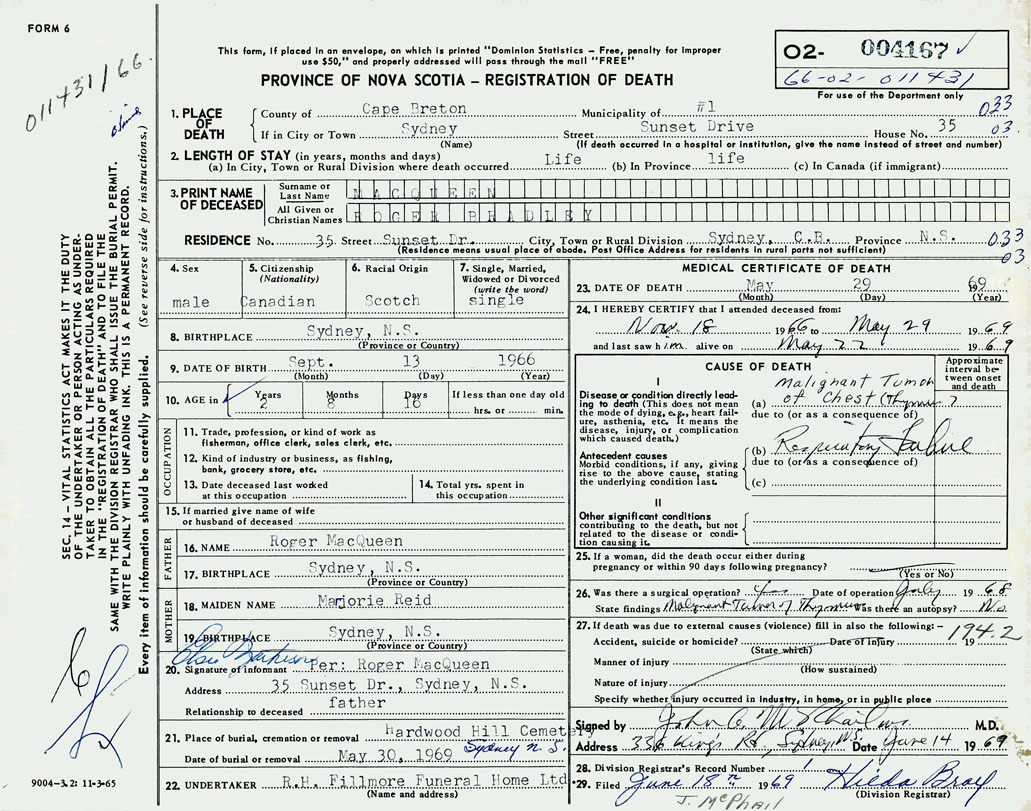 FORM 6
011431/66.
This form, if placed in an envelope, on which is printed "Dominion Statistics – Free, penalty for improper
use $50," and properly addressed will pass through the mail "FREE"
PROVINCE OF NOVA SCOTIA – REGISTRATION OF DEATH
O2- 004167 ✓
66-02-011431
For use of the Department only
SEC. 14 – VITAL STATISTICS ACT MAKES IT THE DUTY
OF THE UNDERTAKER OR PERSON ACTING AS UNDER-
TAKER TO OBTAIN ALL THE PARTICULARS REQUIRED
IN THE "REGISTRATION OF DEATH" AND TO FILE THE
SAME WITH THE DIVISION REGISTRAR WHO SHALL ISSUE THE BURIAL PERMIT.
WRITE PLAINLY WITH UNFADING INK. THIS IS A PERMANENT RECORD.
Every item of information should be carefully supplied. (See reverse side for instructions.)
1. PLACE OF DEATH
County of Cape Breton Municipality of #1 033
If in City or Town Sydney Street Sunset Drive House No. 35 03.
(Name) (If death occurred in a hospital or institution, give the name instead of street and number)
2. LENGTH OF STAY (in years, months and days)
(a) In City, Town or Rural Division where death occurred Life (b) In Province life (c) In Canada (if immigrant)
3. PRINT NAME OF DECEASED
Surname or Last Name MACQUEEN
All Given or Christian Names ROGER BRADLEY
RESIDENCE No. 35 Street Sunset Dr. City, Town or Rural Division Sydney, C.B. Province N.S. 033
(Residence means usual place of abode. Post Office Address for residents in rural parts not sufficient) 03
4. Sex male
5. Citizenship (Nationality) Canadian
6. Racial Origin Scotch
7. Single, Married, Widowed or Divorced (write the word) single
8. BIRTHPLACE Sydney, N.S.
(Province or Country)
9. DATE OF BIRTH Sept. 13 1966
(Month) (Day) (Year)
10. AGE in ✓ Years 2 Months 8 Days 16 If less than one day old hrs. or min.
OCCUPATION
11. Trade, profession, or kind of work as
fisherman, office clerk, sales clerk, etc.
12. Kind of industry or business, as fishing,
bank, grocery store, etc.
13. Date deceased last worked
at this occupation
14. Total yrs. spent in
this occupation
15. If married give name of wife
or husband of deceased
FATHER
16. NAME Roger MacQueen
17. BIRTHPLACE Sydney, N.S.
(Province or Country)
MOTHER
18. MAIDEN NAME Marjorie Reid
19. BIRTHPLACE Sydney, N.S.
(Province or Country)
20. Signature of informant Per: Roger MacQueen
Address 35 Sunset Dr., Sydney, N.S.
Relationship to deceased father
21. Place of burial, cremation or removal Hardwood Hill Cemetery
Sydney N.S.
Date of burial or removal May 30, 1969
22. UNDERTAKER R.H. Fillmore Funeral Home Ltd
(Name and address)
MEDICAL CERTIFICATE OF DEATH
23. DATE OF DEATH May 29 69
(Month) (Day) (Year)
24. I HEREBY CERTIFY that I attended deceased from:
Nov. 18 1966 to May 29 1969
and last saw him alive on May 22 1969
CAUSE OF DEATH
Approximate interval between onset and death
I
Disease or condition directly lead-
ing to death (This does not mean
the mode of dying, e.g., heart fail-
ure, asthenia, etc. It means the
disease, injury, or complication
which caused death.)
(a) Malignant Tumor
of Chest (Thymus) ?
due to (or as a consequence of)
Antecedent causes
Morbid conditions, if any, giving
rise to the above cause, stating
the underlying condition last.
(b) Respiratory Failure
due to (or as a consequence of)
(c)
II
Other significant conditions
contributing to the death, but not
related to the disease or condi-
tion causing it.
25. If a woman, did the death occur either during
pregnancy or within 90 days following pregnancy?
(Yes or No)
26. Was there a surgical operation? yes Date of operation July 1968
State findings Malignant Tumor of Thymus Was there an autopsy? No.
27. If death was due to external causes (violence) fill in also the following: – 1942
Accident, suicide or homicide? Date of injury 19
(State which)
Manner of injury
(How sustained)
Nature of injury
Specify whether injury occurred in industry, in home, or in public place
Signed by John M.D.
Address 336 King's Rd., Sydney, N.S. Date June 14 1969
28. Division Registrar's Record Number
29. Filed June 18th 1969 Hilda Bray
(Division Registrar)
J. McPhail
9004-3.2: 11-3-65